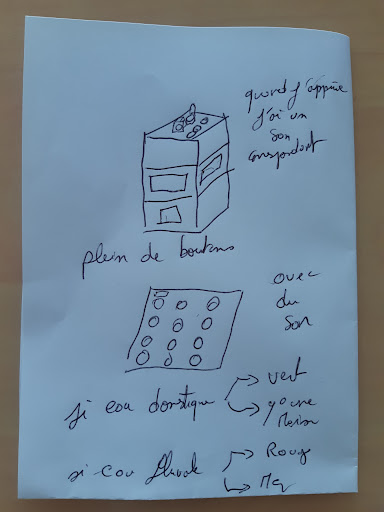 quand j'appuie
j'ai un
son
correspondant
plein de boutons
avec
du
son
si eau domestique
vert
jaune
Maison
si eau fluviale
Rouge
Mer